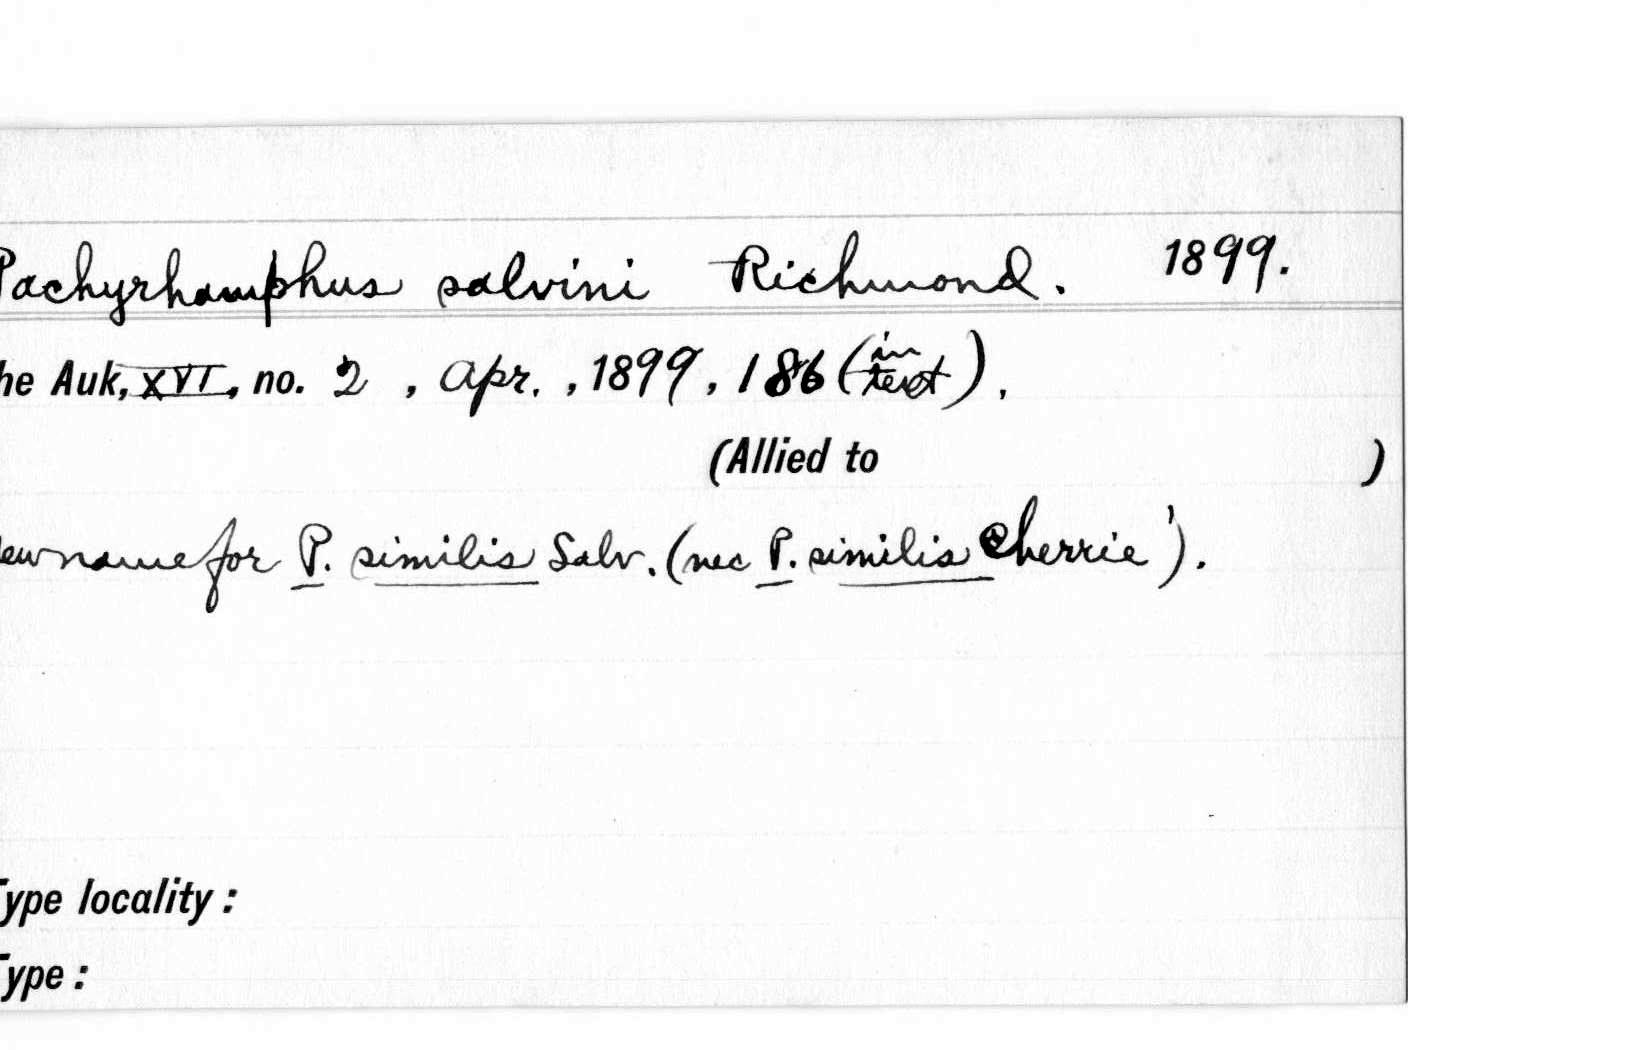 Pachyrhamphus salvini Richmond. 1899.
he Auk, XVI, no. 2, Apr., 1899, 186 (in text).
(Allied to )
ew name for P. similis Salv. (nec P. similis Cherrie').
Type locality:
Type: